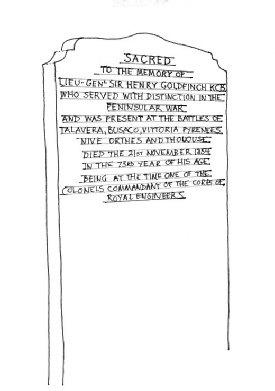 SACRED
TO THE MEMORY OF
LIEU-GENL SIR HENRY GOLDFINCH KCB
WHO SERVED WITH DISTINCTION IN THE
PENINSULAR WAR
AND WAS PRESENT AT THE BATTLES OF
TALAVERA, BUSACO, VITTORIA PYRENEES,
NIVE ORTHES AND THOULOUSE
DIED THE 21ST NOVEMBER 1854
IN THE 73RD YEAR OF HIS AGE
BEING AT THE TIME ONE OF THE
COLONELS COMMANDANT OF THE CORPS OF
ROYAL ENGINEERS